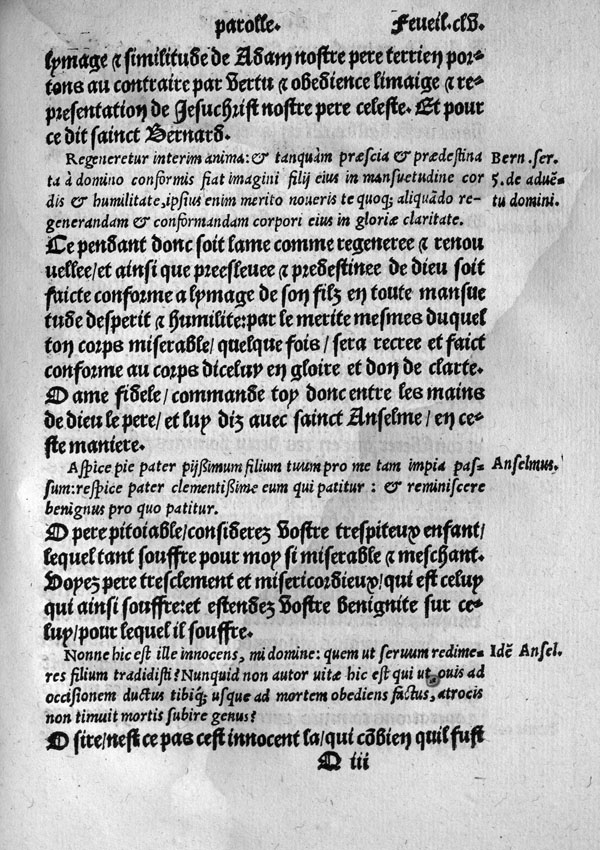 parolle. Feueil.clv.
lymage & similitude de Adam nostre pere terrien por-
tons au contraire par vertu & obedience limaige & re-
presentation de Jesuchrist nostre pere celeste. Et pour
ce dit sainct Bernard.
Regeneretur interim anima: & tanquàm præscia & prædestina Bern. ser.
ta à domino conformis fiat imagini filij eius in mansuetudine cor 5. de aduē-
dis & humilitate, ipsius enim merito noueris te quoq; aliquādo re- tu domini.
generandam & conformandam corpori eius in gloriæ claritate.
Ce pendant donc soit lame comme regeneree & renou
uellee/et ainsi que preesleuee & predestinee de dieu soit
faicte conforme a lymage de son filz en toute mansue
tude desperit & humilite:par le merite mesmes duquel
ton corps miserable/quelque fois/sera recree et faict
conforme au corps diceluy en gloire et don de clarte.
O ame fidele/commande toy donc entre les mains
de dieu le pere/et luy diz avec sainct Anselme/en ce-
ste maniere.
Aspice pie pater pijssimum filium tuum pro me tam impia pas- Anselmus.
sum:respice pater clementissime eum qui patitur : & reminiscere
benignus pro quo patitur.
O pere pitoiable/considerez vostre trespiteux enfant/
lequel tant souffre pour moy si miserable & meschant.
Voyez pere tresclement et misericordieux/qui est celuy
qui ainsi souffre:et estendez vostre benignite sur ce-
luy/pour lequel il souffre.
Nonne hic est ille innocens, mi domine: quem ut seruum redime- Idē Ansel.
res filium tradidisti? Nunquid non autor vitæ hic est qui ut ouis ad
occisionem ductus tibiq; usque ad mortem obediens factus, atrocis
non timuit mortis subire genus?
O sire/nest ce pas cest innocent la/qui cōbien quil fust
Q iii